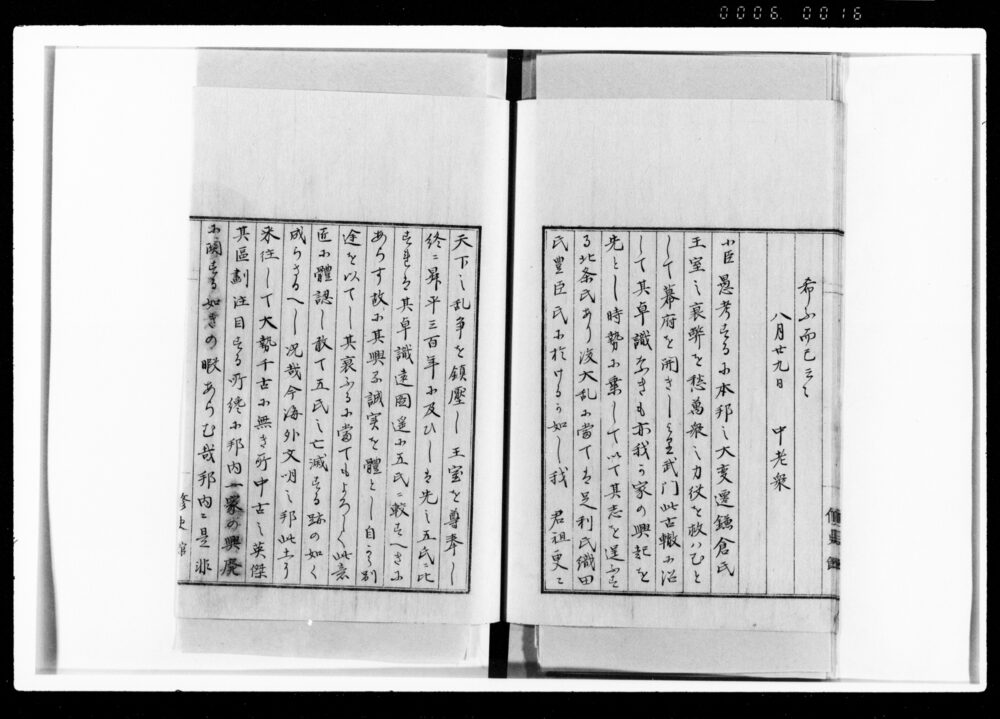 0006 0016
希ふ而已云々
八月廿九日 中老衆
小臣愚考するに本邦之大変遷鎌倉氏
王室之衰弊を愁萬衆之力役を救ハむと
して幕府を開きしより武門此古轍に沿
して其卓識なきも亦我か家の興起を
先とし時勢に業して以て其志を逞ふす
る北条氏あり後大乱に當て足利氏織田
氏豊臣氏に於けるか如し我 君祖更ニ
天下之乱争を鎮壓し 王室を尊奉し
終ニ昇平三百年に及ひしを先之五氏ニ比
すれは其卓識遠圖遥に五氏ニ較すへきに
あらす故に其興る誠実を體とし自から別
途を以てし其衰ふるに當てもよろしく此意
匠に體認し敢て五氏之亡滅する跡の如く
成らさるへし況哉今海外文明之邦此土に
来往して大勢千古に無き所中古之英傑
其區劃注目する所纔に邦内一家の興廃
に関する如きの暇あらむ哉邦内ニ是非
修史館